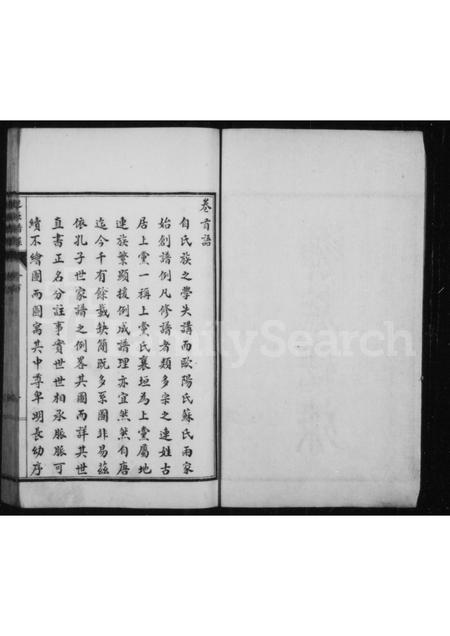 卷首語
自氏族之學失講而歐陽氏蘇氏兩家
始創譜例凡修譜者類多宗之連姓古
居上黨一稱上黨氏襄垣為上黨屬地
連族繁顯援例成譜理亦宜然然自唐
迄今千有餘載缺簡既多系圖非易茲
依孔子世家譜之例畧其圖而詳其世
直書正名分註事實世世相承脈脈可
續不繪圖而圖寓其中尊卑明長幼序
FamilySearch